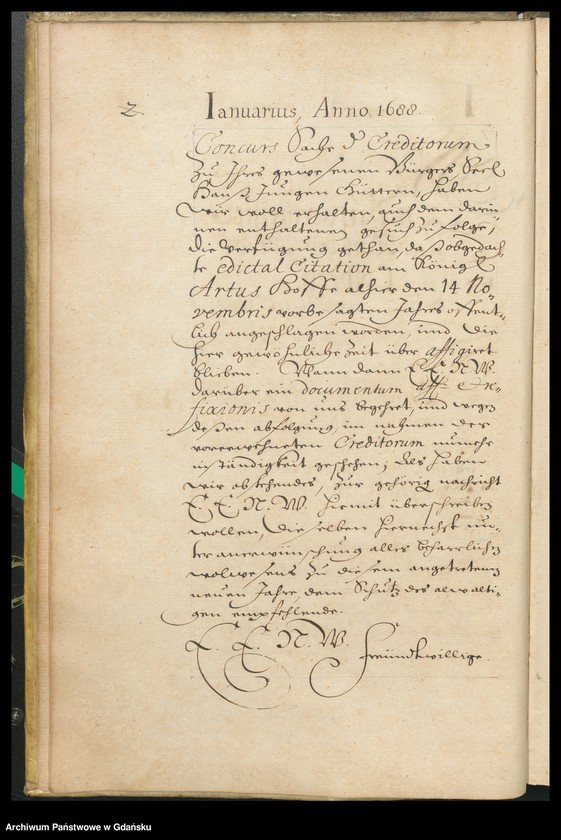 2
Ianuarius, Anno 1688.
Concurs Sache d Creditorum
zu Ihres gewesenen Bürgers, Seel
Hanß Jungen Hüttern, haben
wir woll erhalten, auch dem darin-
nen enthaltenen gesuch zu folge,
die Verfügung gethan, daß obgedach-
te Edictal Citation am Königl
Artus Hoffe alhier den 14 No-
vembris vorbesagten Jahres offent-
lich angeschlagen worden, und die
hier gewöhnliche Zeit über affigiret
blieben. Wann dann E. E. N. W.
darüber ein documentum aff: et re-
fixionis von uns begehret, und wegen
deßen abfolgung, im nahmen der
vorerwehneten Creditorum nunmehr
instandigkeit geschehen; Als haben
wir obstehendes, zur gehörig nachricht
E. E. N. W. hiemit überschreiben
wollen, dieselben hiernechst un-
ter anerwünschung alles beharrlichen
wolwesens zu diesem angetretenen
neuen Jahre, dem Schutz des alwalti-
gen empfehlende.
E. E. N. W. freundtwillige.
Archiwum Państwowe w Gdańsku